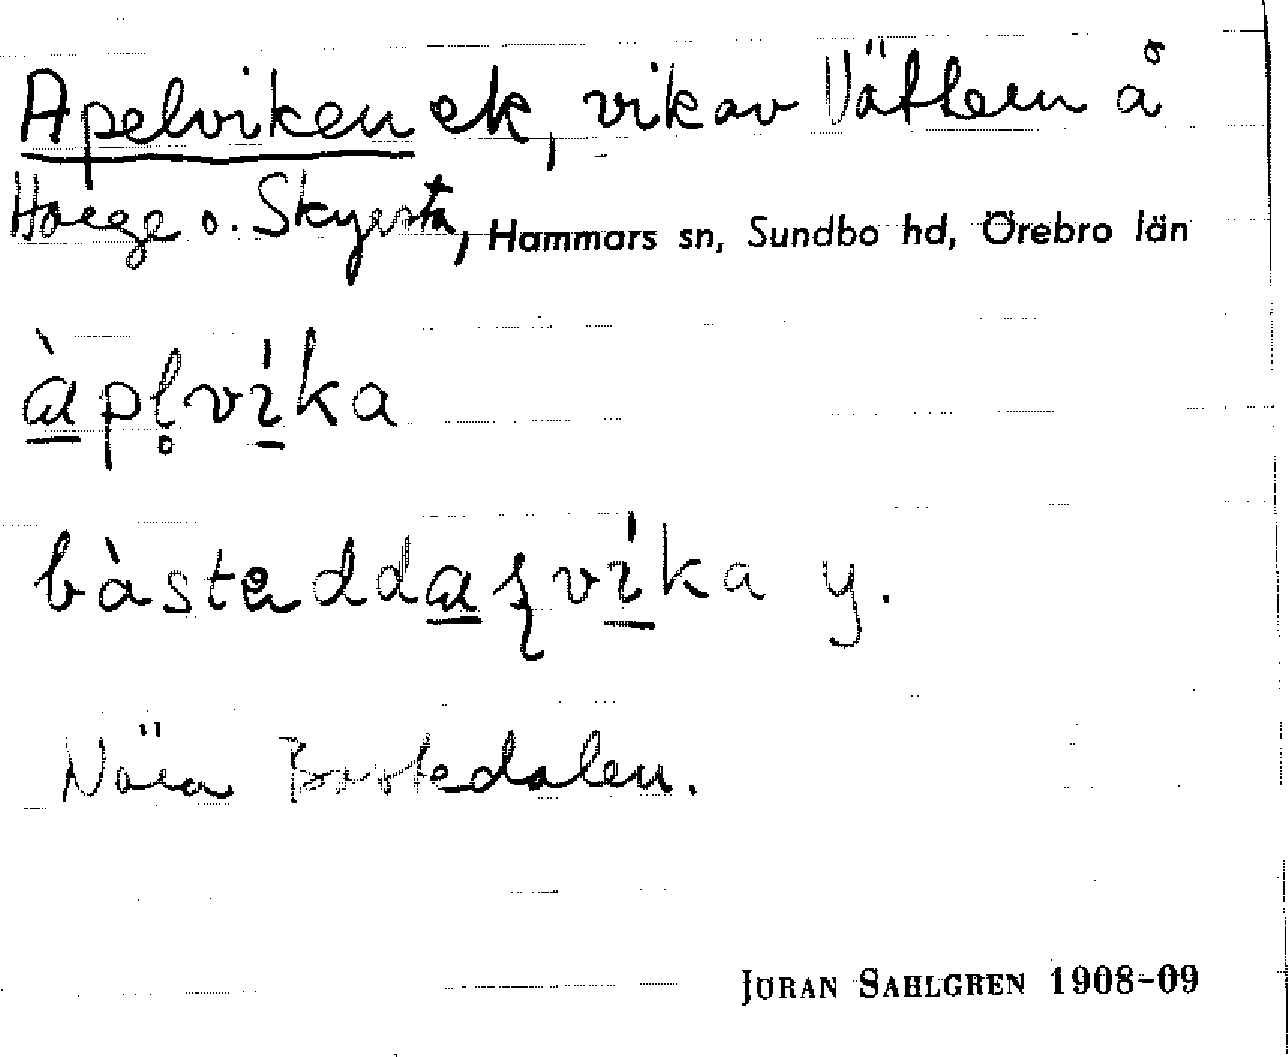 Apelviken ek, vik av Vättern å
Harge o. Skyrsta, Hammars sn, Sundbo hd, Örebro län
àpl̥víka
y.
Nära Bastedalen.
JÖRAN SAHLGREN 1908-09